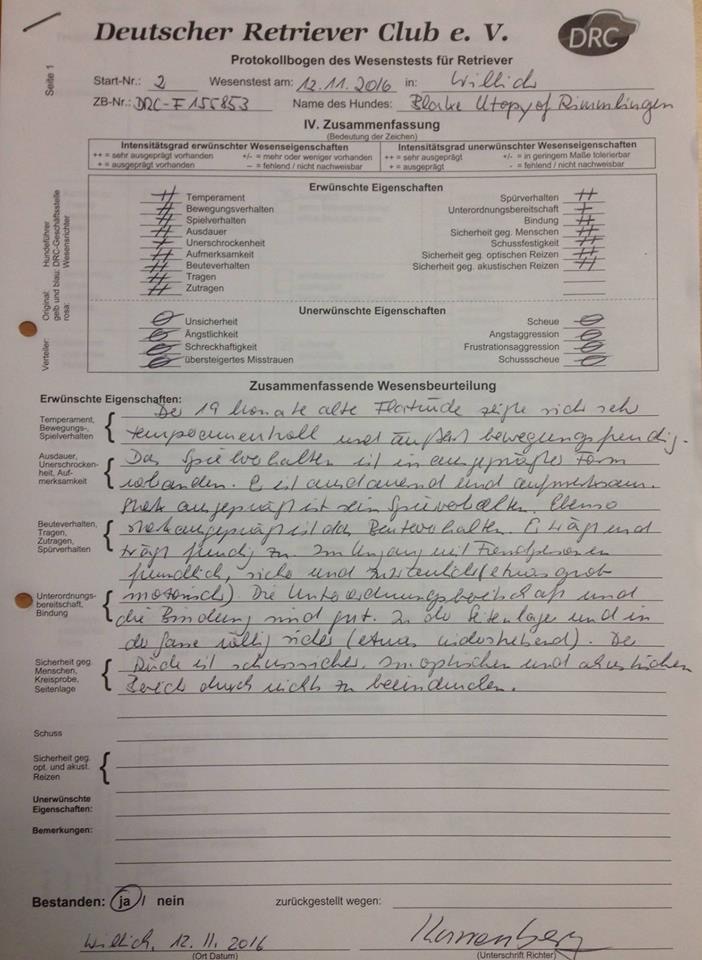 Deutscher Retriever Club e. V.
DRC
Protokollbogen des Wesenstests für Retriever
Seite 1
Start-Nr.: 2 Wesenstest am: 12.11.2016 in: Willich
ZB-Nr.: DRC-F 155853 Name des Hundes: Blake Utopy of Rimmlingen
IV. Zusammenfassung
(Bedeutung der Zeichen)
Intensitätsgrad erwünschter Wesenseigenschaften
++ = sehr ausgeprägt vorhanden +/- = mehr oder weniger vorhanden
+ = ausgeprägt vorhanden – = fehlend / nicht nachweisbar
Intensitätsgrad unerwünschter Wesenseigenschaften
++ = sehr ausgeprägt +/- = in geringem Maße tolerierbar
+ = ausgeprägt - = fehlend / nicht nachweisbar
Verteiler: Original: Hundeführer
gelb und blau: DRC-Geschäftsstelle
rosa: Wesensrichter
Erwünschte Eigenschaften
++ Temperament
++ Bewegungsverhalten
++ Spielverhalten
++ Ausdauer
+ Unerschrockenheit
++ Aufmerksamkeit
++ Beuteverhalten
++ Tragen
++ Zutragen
Spürverhalten ++
Unterordnungsbereitschaft +
Bindung ++
Sicherheit geg. Menschen ++
Schussfestigkeit ++
Sicherheit geg. optischen Reizen ++
Sicherheit geg. akustischen Reizen ++
Unerwünschte Eigenschaften
Unsicherheit
Ängstlichkeit
Schreckhaftigkeit
übersteigertes Misstrauen
Scheue
Angstaggression
Frustrationsaggression
Schussscheue
Zusammenfassende Wesensbeurteilung
Erwünschte Eigenschaften:
Temperament,
Bewegungs-,
Spielverhalten
Ausdauer,
Unerschrocken-
heit, Auf-
merksamkeit
Beuteverhalten,
Tragen,
Zutragen,
Spürverhalten
Unterordnungs-
bereitschaft,
Bindung
Sicherheit geg.
Menschen,
Kreisprobe,
Seitenlage
Der 19 Monate alte Flatrüde zeigte sich sehr
temperamentvoll und äußerst bewegungsfreudig.
Das Spielverhalten ist in ausgeprägter Form
vorhanden. Er ist ausdauernd und aufmerksam.
Stark ausgeprägt ist sein Spürverhalten. Ebenso
stark ausgeprägt ist das Beuteverhalten. Er trägt und
trägt freudig zu. Im Umgang mit Fremdpersonen
freundlich, sicher und zutraulich (etwas grob
motorisch). Die Unterordnungsbereitschaft und
die Bindung sind gut. In der Seitenlage und in
der Gasse völlig sicher (etwas widerstrebend). Der
Rüde ist schusssicher. Im optischen und akustischen
Bereich durch nichts zu beeindrucken.
Schuss
Sicherheit geg.
opt. und akust.
Reizen
Unerwünschte
Eigenschaften:
Bemerkungen:
Bestanden: ja / nein zurückgestellt wegen:
Willich, 12.11.2016
(Ort Datum)
(Unterschrift Richter)